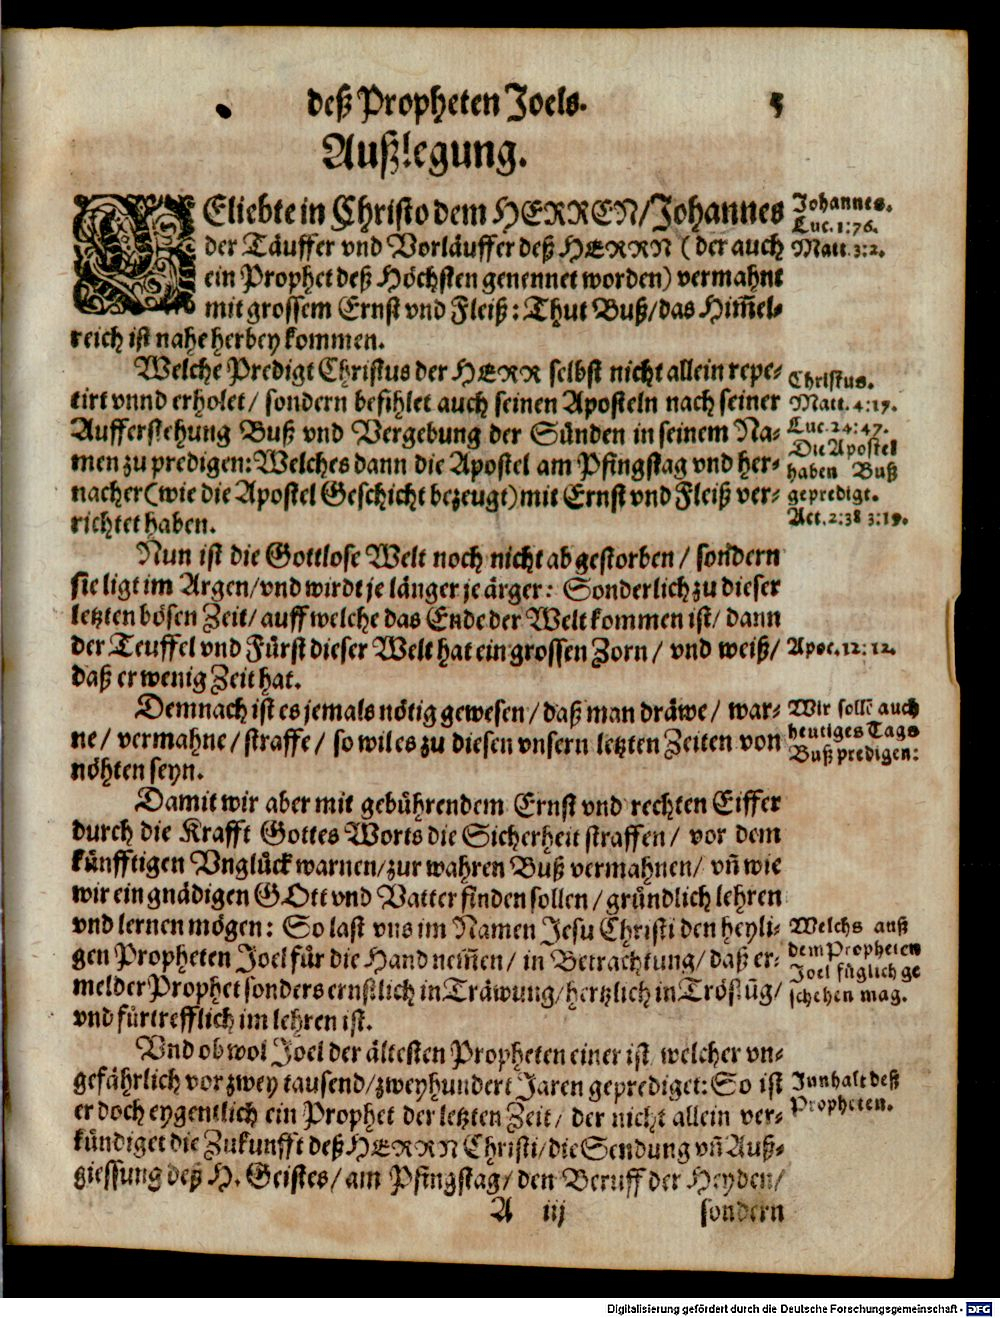 deß Propheten Joels. 5
Außlegung.
GEliebte in Christo dem HERREN/Johannes
der Täuffer vnd Vorläuffer deß HERRN (der auch
ein Prophet deß Höchsten genennet worden) vermahnt
mit grossem Ernst vnd Fleiß: Thut Buß/das Him̃el-
reich ist nahe herbey kommen.
Johannes.
Luc. 1:76.
Matt. 3:2.
Welche Predigt Christus der HERR selbst nicht allein repe-
tirt vnnd erholet/ sondern befihlet auch seinen Aposteln nach seiner
Aufferstehung Buß vnd Vergebung der Sünden in seinem Na-
men zu predigen: Welches dann die Apostel am Pfingstag vnd her-
nacher (wie die Apostel Geschicht bezeugt) mit Ernst vnd Fleiß ver-
richtet haben.
Christus.
Matt. 4:17.
Luc. 24:47.
Die Apostel
haben Buß
gepredigt.
Act. 2:38 3:19.
Nun ist die Gottlose Welt noch nicht abgestorben/ sondern
sie ligt im Argen/vnd wirdt je länger je ärger: Sonderlich zu dieser
letzten bösen Zeit/ auff welche das Ende der Welt kommen ist/ dann
der Teuffel vnd Fürst dieser Welt hat ein grossen Zorn/ vnd weiß/
daß er wenig Zeit hat.
Apoc. 12:12.
Demnach ist es jemals nötig gewesen/ daß man dräwe/ war-
ne/ vermahne/ straffe/ so wil es zu diesen vnsern letzten Zeiten von
nöhten seyn.
Wir sollẽ auch
heutiges Tags
Buß predigen:
Damit wir aber mit gebührendem Ernst vnd rechten Eiffer
durch die Krafft Gottes Worts die Sicherheit straffen/ vor dem
künfftigen Vnglück warnen/ zur wahren Buß vermahnen/ vñ wie
wir ein gnädigen GOtt vnd Vatter finden sollen/ gründlich lehren
vnd lernen mögen: So last vns im Namen Jesu Christi den heyli-
gen Propheten Joel für die Hand nem̃en/ in Betrachtung/ daß er-
melder Prophet sonders ernstlich in Träwung/ hertzlich in Tröstũg/
vnd fürtrefflich im lehren ist.
Welchs auß
dem Propheten
Joel füglich ge
schehen mag.
Vnd ob wol Joel der ältesten Propheten einer ist welcher vn-
gefährlich vor zwey tausend/ zweyhundert Jaren geprediget: So ist
er doch eygentlich ein Prophet der letzten Zeit/ der nicht allein ver-
kündiget die Zukunfft deß HERRN Christi/ die Sendung vñ Auß-
giessung deß H. Geistes/ am Pfingstag/ den Beruff der Heyden/
Innhalt deß
Propheten.
A iij sondern
Digitalisierung gefördert durch die Deutsche Forschungsgemeinschaft - DFG